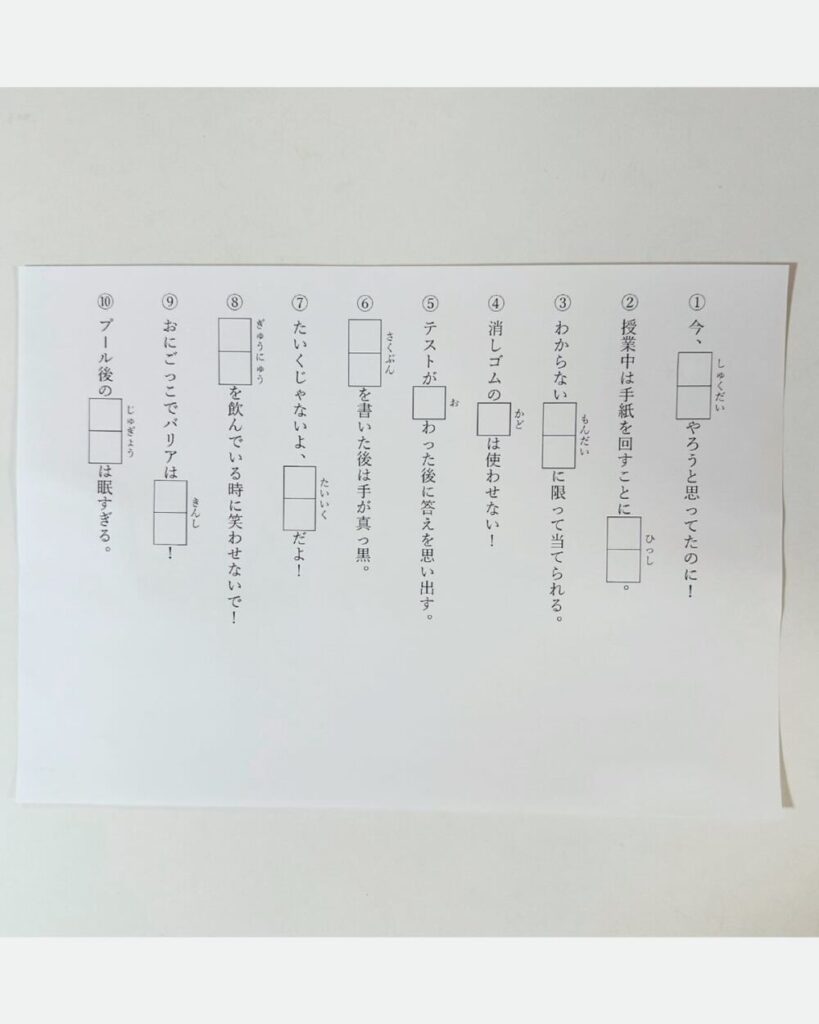 ①今、□□やろうと思ってたのに！
しゅくだい
②授業中は手紙を回すことに□□。
ひっし
③わからない□□に限って当てられる。
もんだい
④消しゴムの□は使わせない！
かど
⑤テストが□わった後に答えを思い出す。
お
⑥□□を書いた後は手が真っ黒。
さくぶん
⑦たいくじゃないよ、□□だよ！
たいいく
⑧□□を飲んでいる時に笑わせないで！
ぎゅうにゅう
⑨おにごっこでバリアは□□！
きんし
⑩プール後の□□は眠すぎる。
じゅぎょう